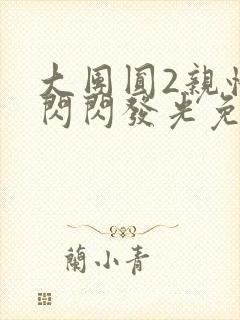 大團圓2親
閃閃發光免
蘭小青